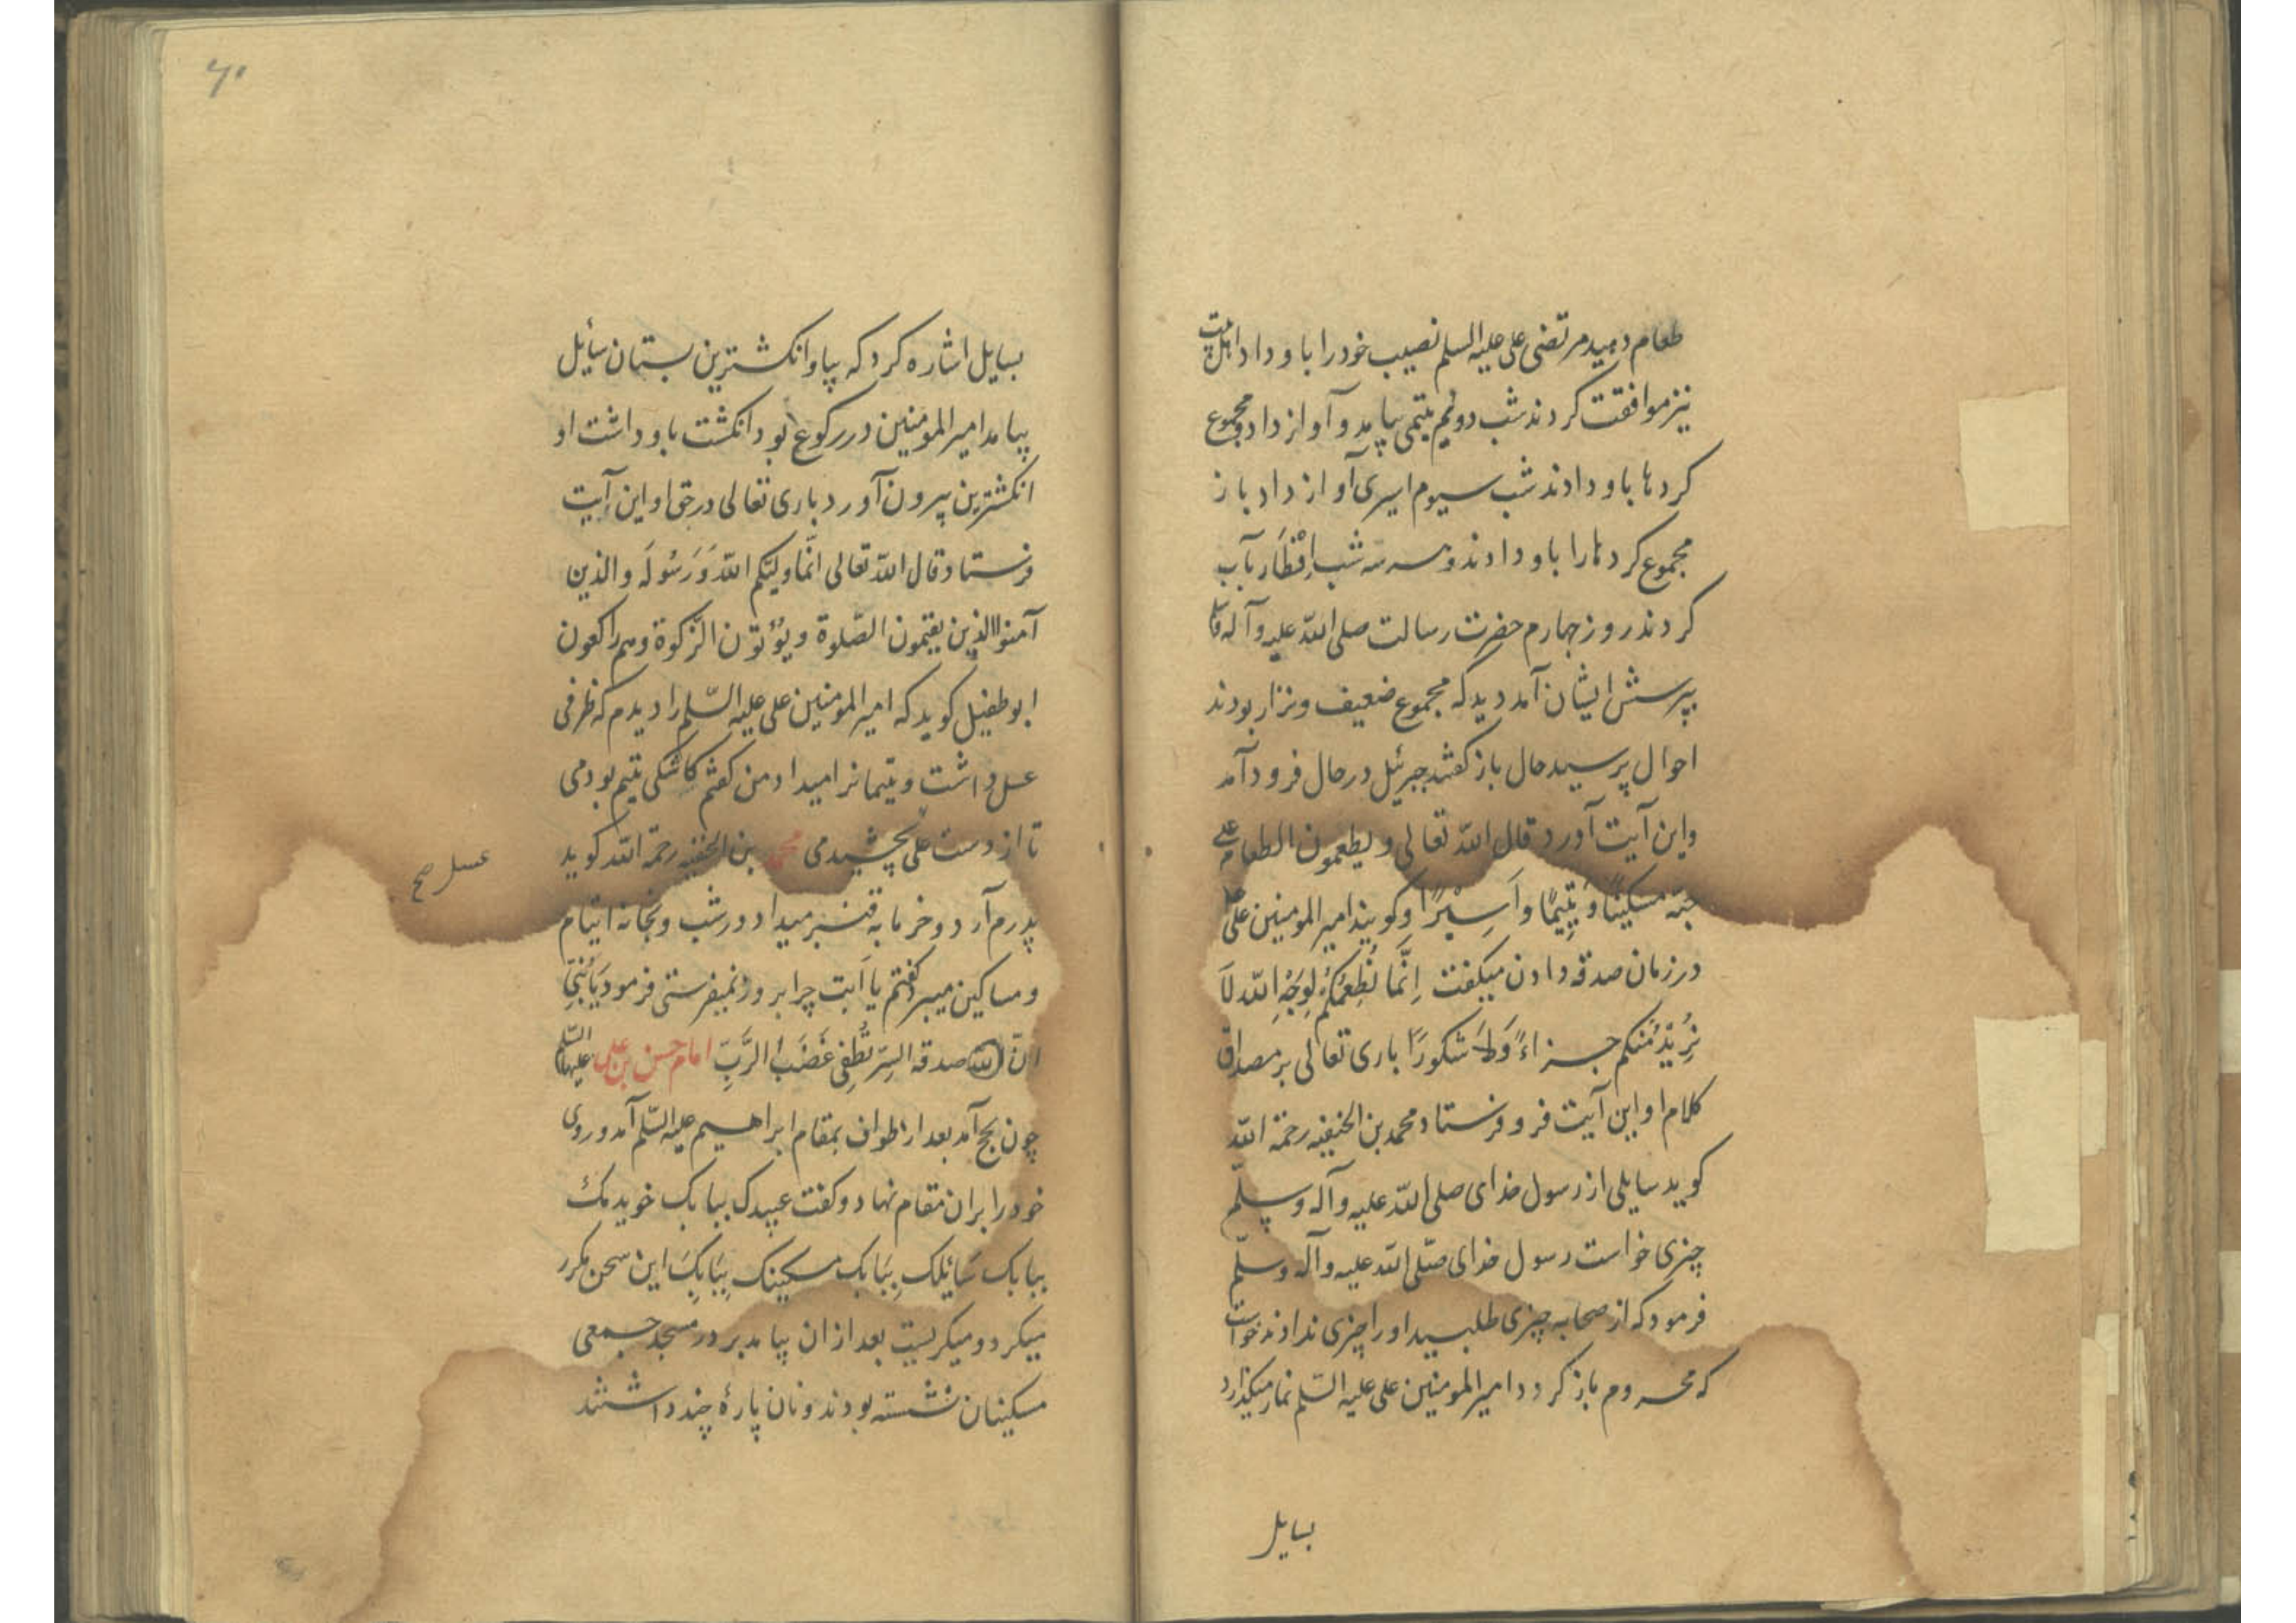 طعام دهید مرتضی علی علیه السلم نصیب خود را باو داد اهل بیت
نیز موافقت کردند شب دویم یتیمی بیامد و آواز داد و مجموع
کردها باو دادند شب سیوم اسیری آواز داد باز
مجموع کردها را باو دادند و سه شب افْطَار بآب
کردند روز چهارم حضرت رسالت صلی الله علیه وآله وسلم
بپرسش ایشان آمد دید که مجموع ضعیف و نزار بودند
احوال پرسید حال باز کفتند جبرئیل در حال فرود آمد
واین آیت آورد قال الله تعالی ویطعمون الطعام علی
حبّه مسکینًا وَیَتِیمًا واَسِیْرًا وکویند امیر المومنین علی
در زمان صدقه دادن میکفت اِنَّمَا نُطْعِمُکُمْ لِوَجْهِ الله لَا
نُرِیْدُ مِنکم جزاءً وَلَا شکورًا باری تعالی بر مصداق
کلام او این آیت فرو فرستاد محمد بن الحنفیه رحمة الله
کوید سایلی از رسول خدای صلی الله علیه وآله وسلّم
چیزی خواست رسول خدای صلّی الله علیه وآله وسلّم
فرمود که از صحابه چیزی طلبید او را چیزی ندادند خواست
که محروم باز کردد امیر المومنین علی علیه السلم نماز میکذارد
بسایل
۶۱
بسایل اشاره کرد که بیا و انکشترین بستان سأیل
بیامد امیر المومنین در رکوع بود انکشت باو داشت او
انکشترین بیرون آورد باری تعالی در حق او این آیت
فرستاد قال الله تعالی انّما ولیّکم الله وَرَسُولَه والذین
آمنوا الذین یقیمون الصّلوة ویُؤتون الزّکوة وهم راکعون
ابو طفیل کوید که امیر المومنین علی علیه السّلم را دیدم که ظرفی
عسل داشت و یتیمانرا میداد من کفتم کاشکی یتیم بودمی
تا از دست علی بچشیدمی محمد بن الحنفیه رحمة الله کوید
عسل صح
پدرم آرد و خرما به قنبر میداد در شب و بخانه ایتام
و مساکین میبرد کفتم یا اَبت چرا بروز نمیفرستی فرمود یَابُنَیّ
انّ الله صدقه السِرّ تُطفِی غَضَبَ الرَّبِّ امام حسن بن علی علیهما السّلم
چون بحج آمد بعد از طواف بمقام ابراهیم علیه السّلم آمد و روی
خود را بران مقام نهاد و کفت عبیدک ببابک خویدمک
ببابک سَائلک بِبَابک مسکینک بِبَابِکَ این سخن مکرر
میکرد و میکریست بعد از ان بیامد بر در مسجد جمعی
مسکینان نشسته بودند و نان پارهٔ چند داشتند